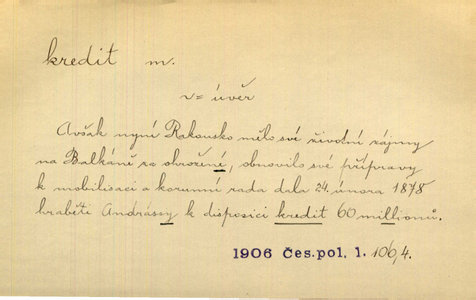 kredit m.
v = úvěr
Avšak nyní Rakousko mělo své životní zájmy
na Balkáně za ohrožené, obnovilo své přípravy
k mobilisaci a korunní rada dala 24. února 1878
hraběti Andrássy k disposici kredit 60 millionů.
1906 Čes. pol. 1. 106,4.